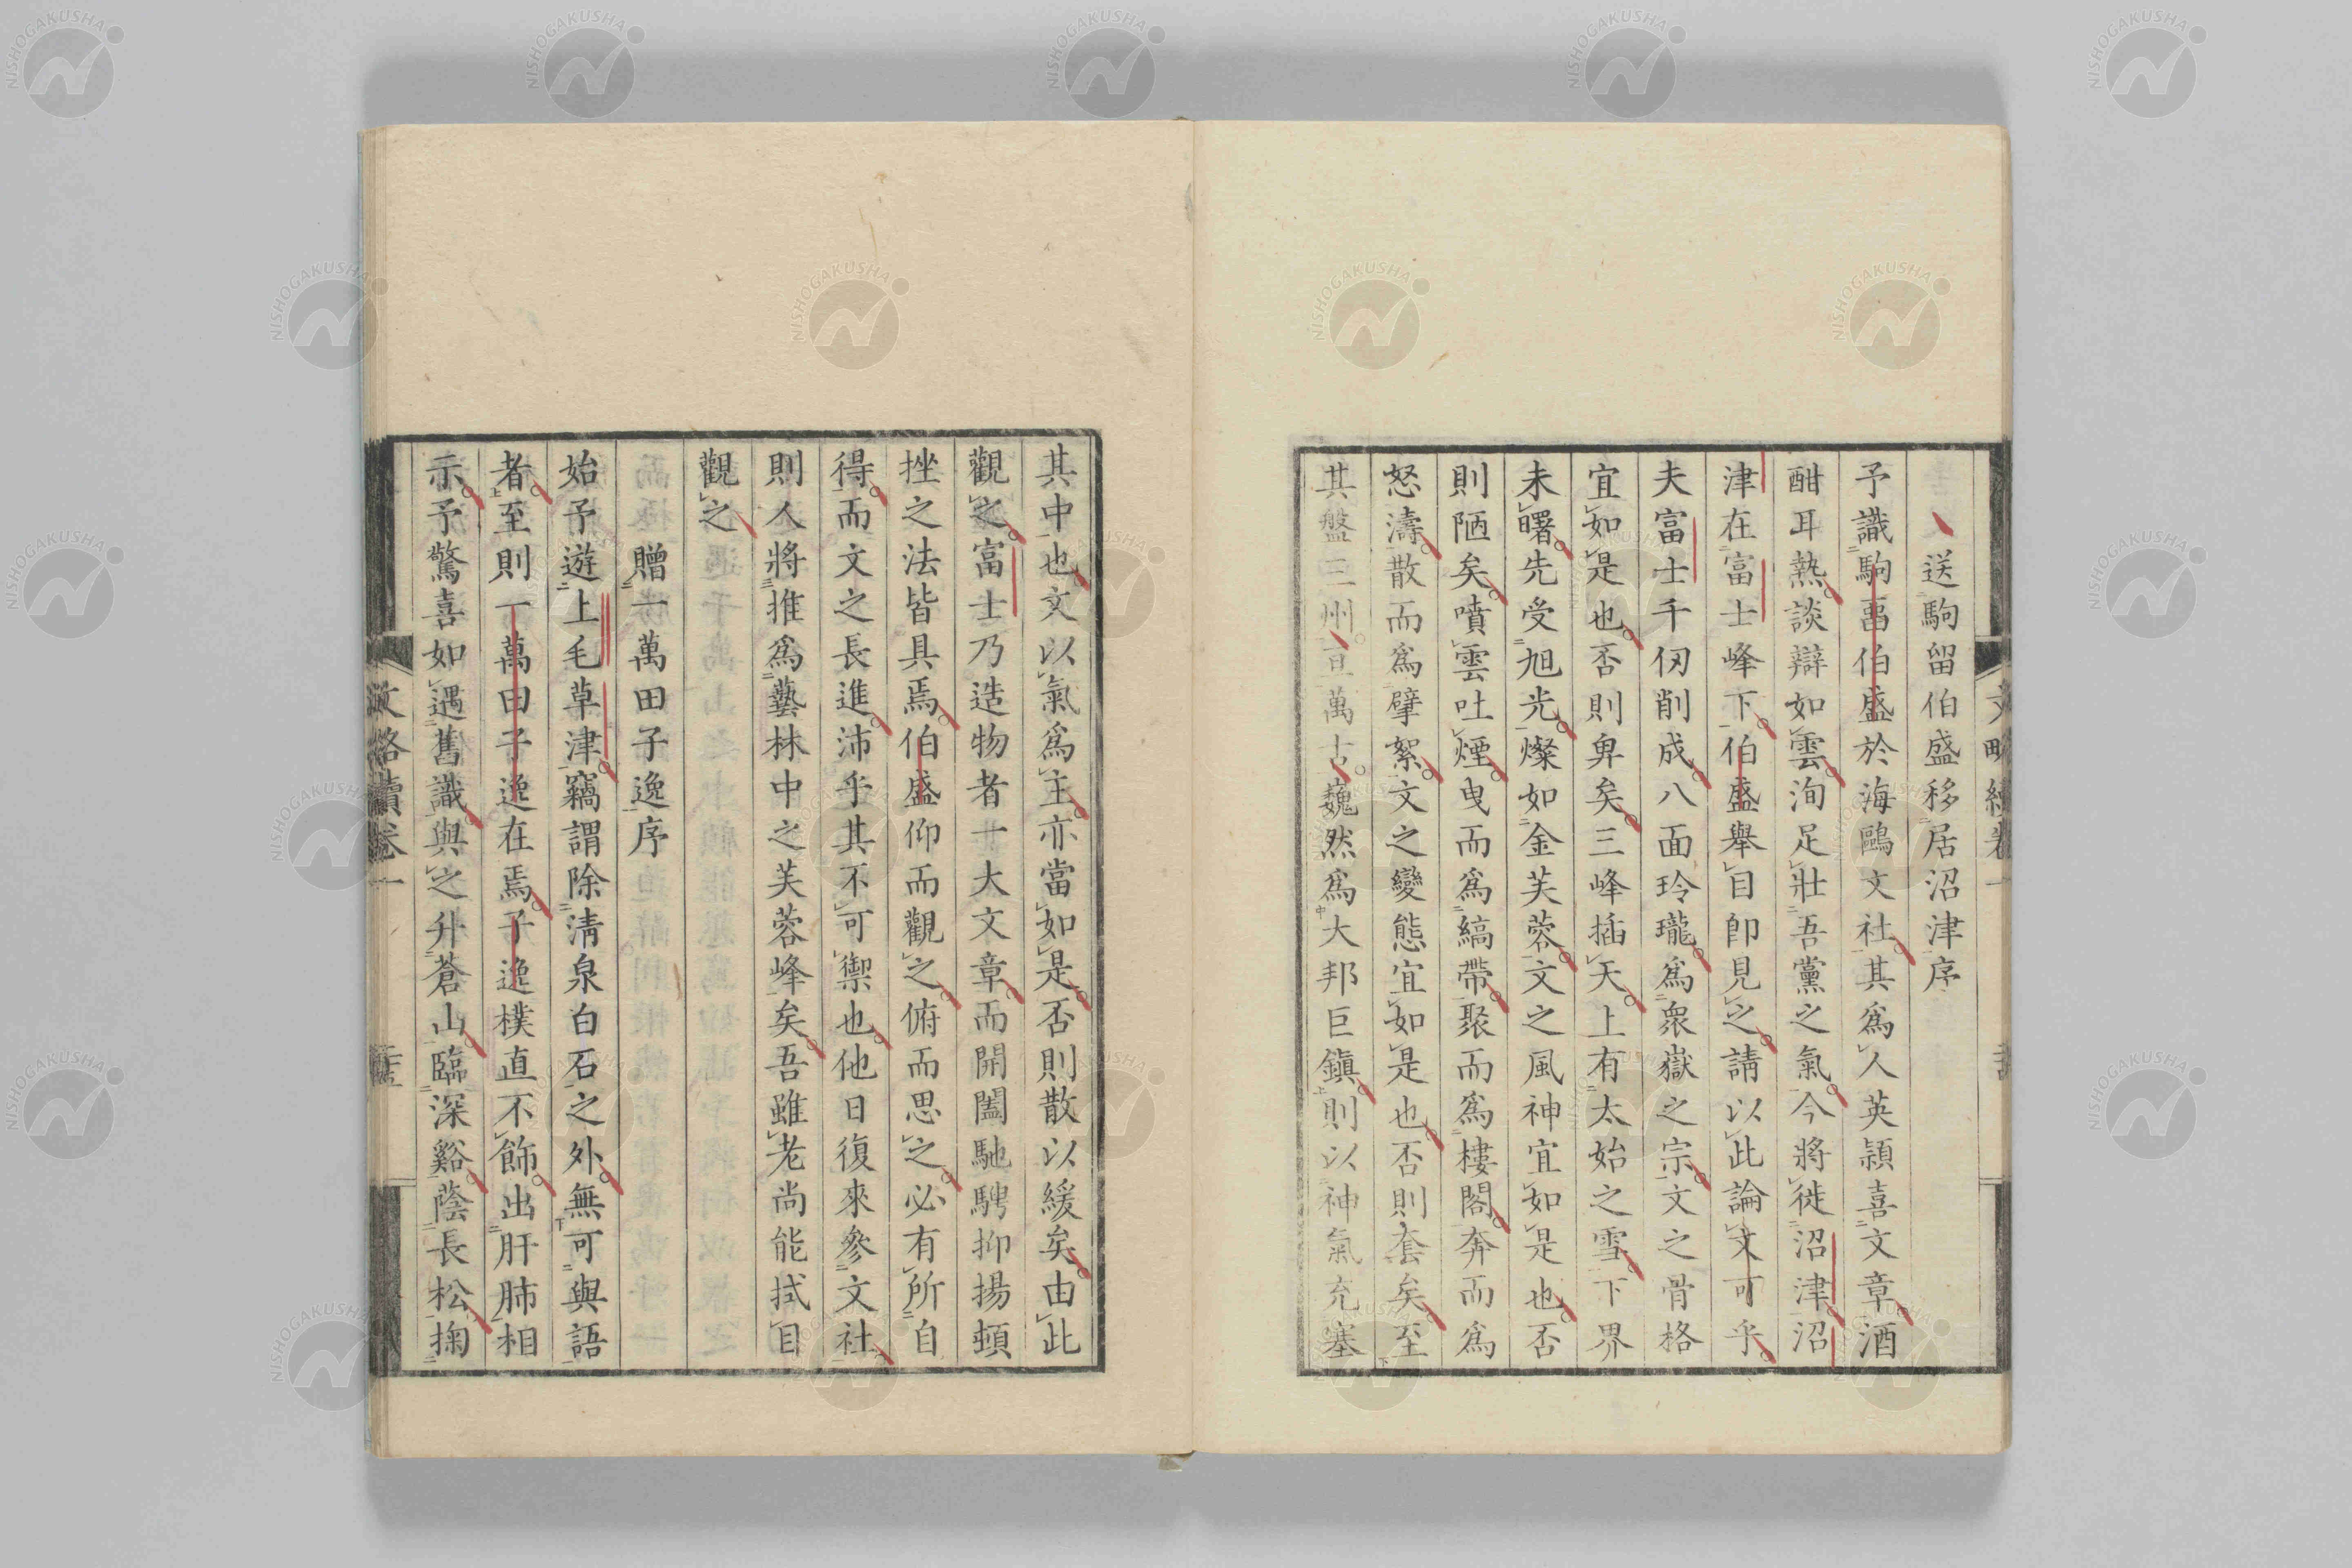 送駒留伯盛移居沼津序
予識駒畱伯盛於海鷗文社其爲人英穎喜文章酒
酣耳熱談辯如雲洵足壯吾黨之氣今將徙沼津沼
津在富士峰下伯盛舉目卽見之請以此論文可乎
夫富士千仞削成八面玲瓏爲衆嶽之宗文之骨格
宜如是也否則卑矣三峰插天上有太始之雪下界
未曙先受旭光燦如金芙蓉文之風神宜如是也否
則陋矣噴雲吐煙曳而爲縞帶聚而爲樓閣奔而爲
怒濤散而爲擘絮文之變態宜如是也否則套矣至
其盤三州亘萬古巍然爲大邦巨鎭則以神氣充塞
其中也文以氣爲主亦當如是否則散以緩矣由此
觀之富士乃造物者一大文章而開闔馳騁抑揚頓
挫之法皆具焉伯盛仰而觀之俯而思之必有所自
得而文之長進沛乎其不可禦也他日復來參文社
則人將推爲藝林中之芙蓉峰矣吾雖老尚能拭目
觀之
贈一萬田子逸序
始予遊上毛草津竊謂除淸泉白石之外無可與語
者至則一萬田子逸在焉子逸樸直不飾出肝肺相
示予驚喜如遇舊識與之升蒼山臨深谿蔭長松掬
文略續卷一
NISHOGAKUSHA